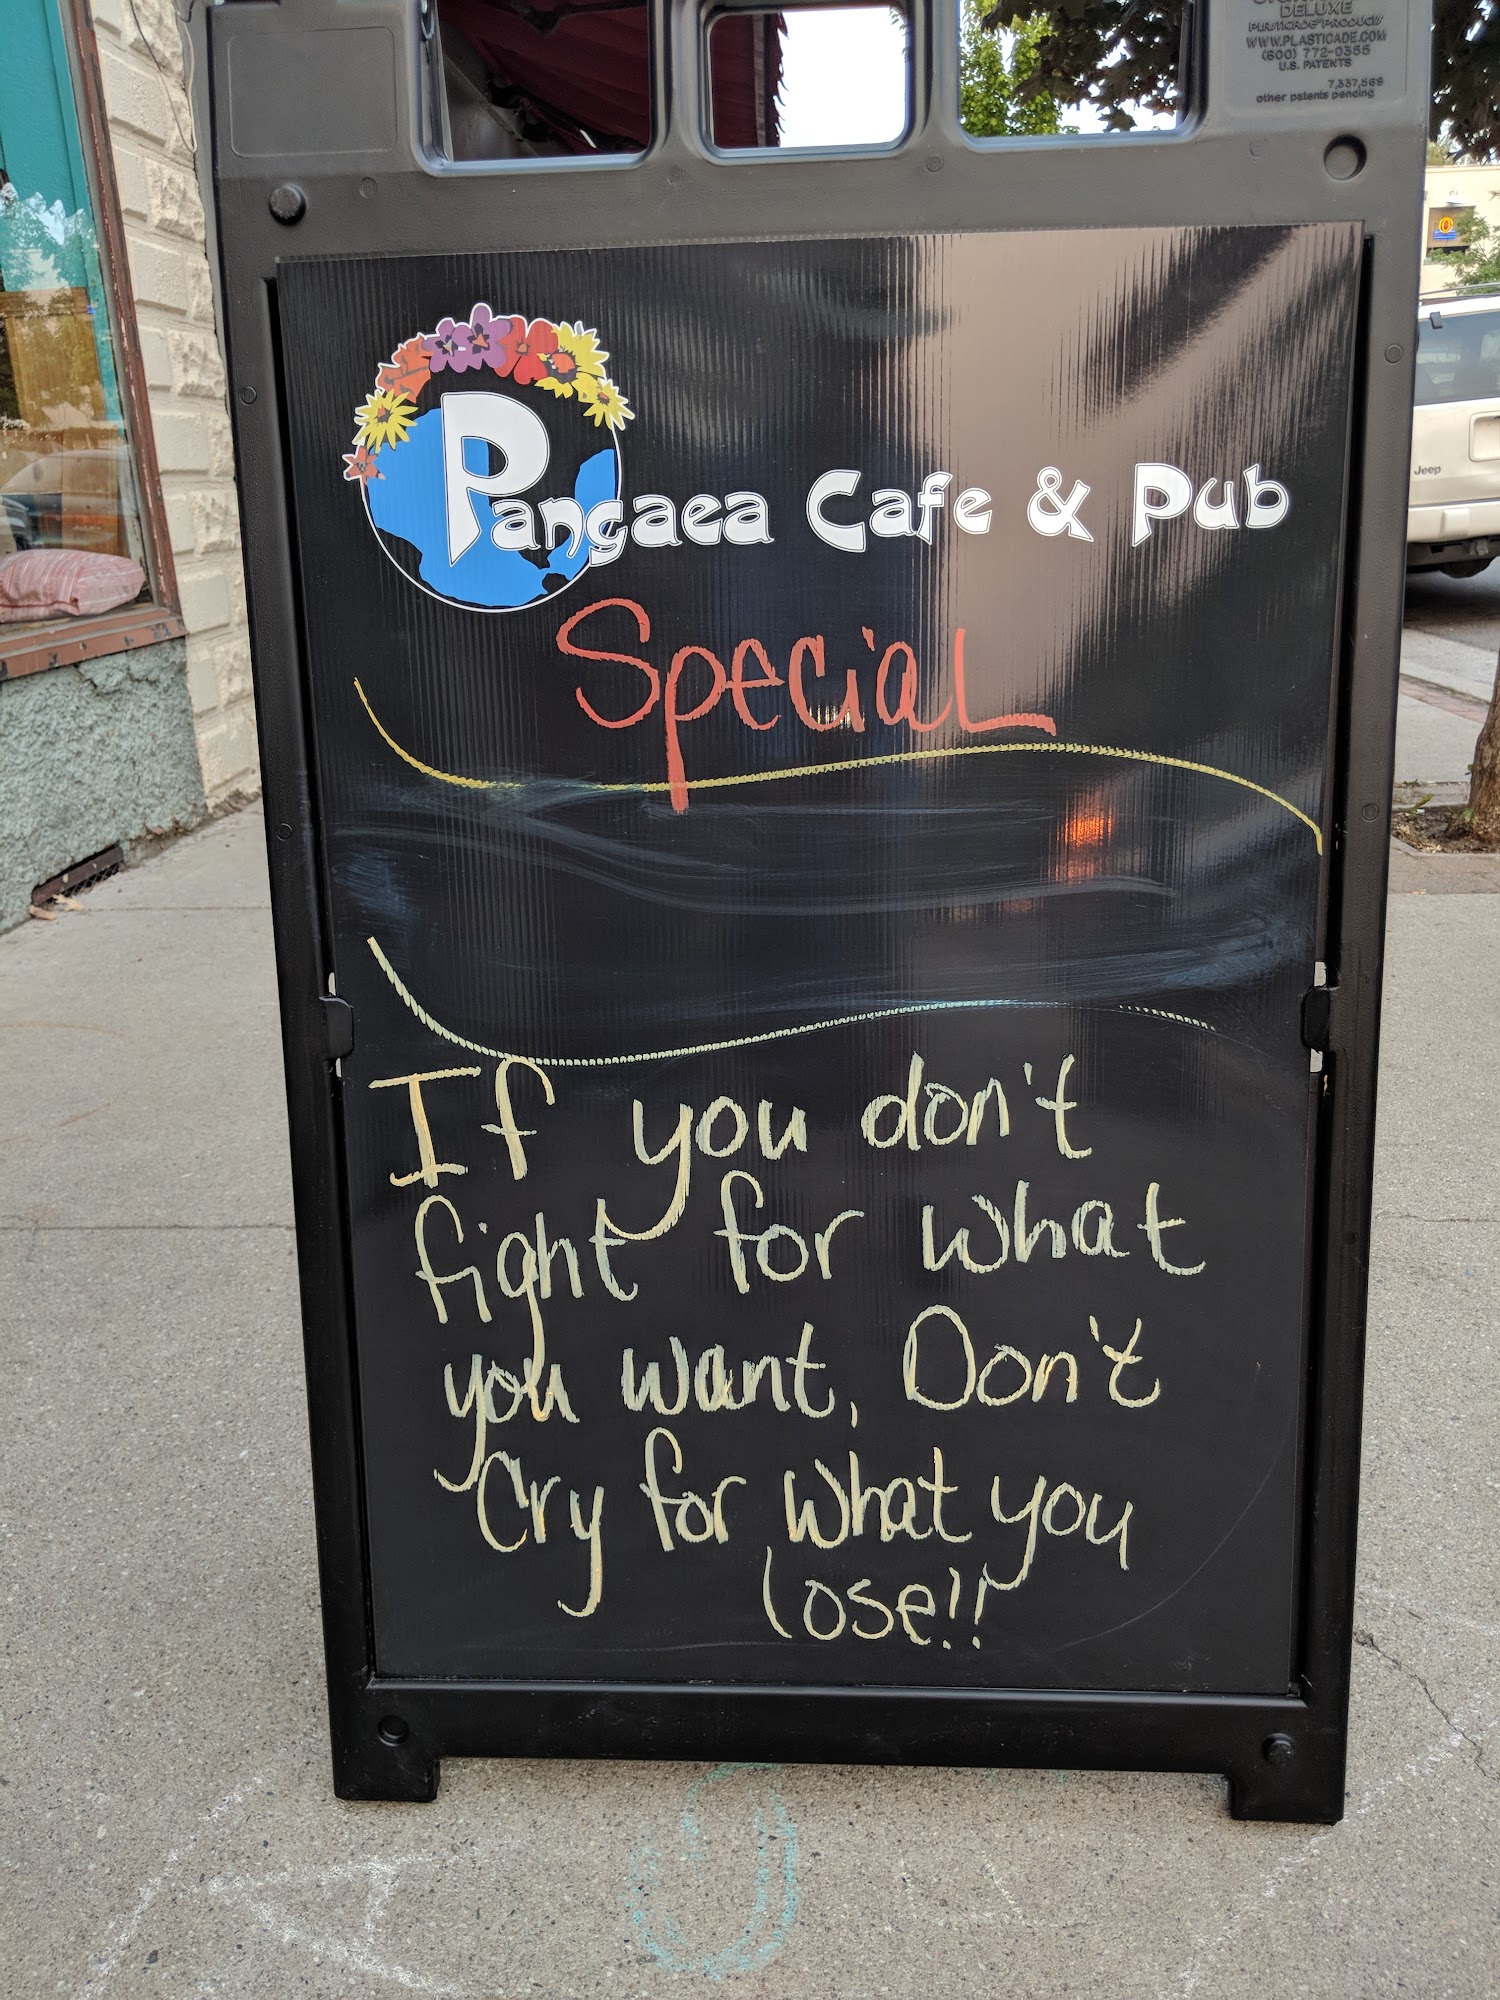 DELUXE
PLASTICADE PRODUCTS
WWW.PLASTICADE.COM
(800) 772-0355
U.S. PATENTS
7,337,569
other patents pending
Pangaea Cafe & Pub
Jeep
Special
If you don't
fight for what
you want, Don't
Cry for what you
lose!!